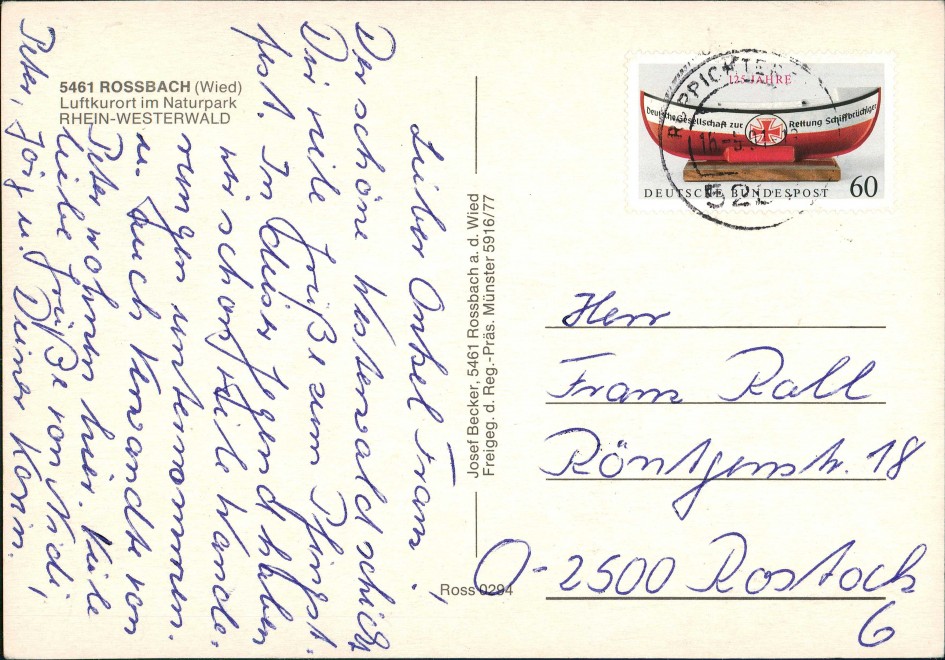 5461 ROSSBACH (Wied)
Luftkurort im Naturpark
RHEIN-WESTERWALD
Lieber Onkel Franz,
Der schöne Westerwald schickt
Dir viele Grüße zum Pfingst-
fest. In dieser Gegend haben
wir schon viele Wande-
rungen unternommen.
u. Auch Verwandte von
Peter wohnen hier. Viele
liebe Grüße von Nidi,
Peter, Jörg u. Deiner Karin.
Josef Becker, 5461 Rossbach a. d. Wied
Freigeg. d. Reg.-Präs. Münster 5916/77
Ross 0294
125 JAHRE
Deutsche Gesellschaft zur Rettung Schiffbrüchiger
DEUTSCHE BUNDESPOST 60
RUPPICHTEROTH
522
Herr
Franz Rall
Röntgenstr. 18
O-2500 Rostock
6